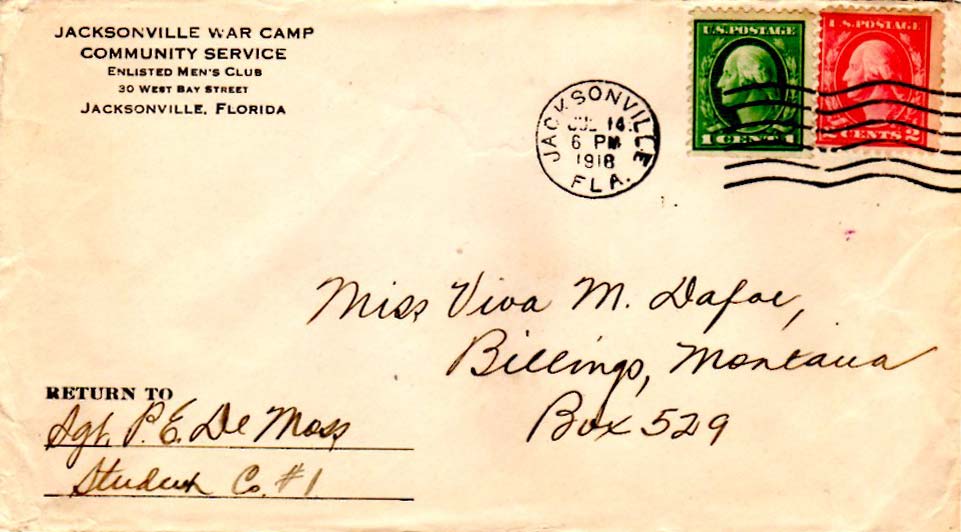 JACKSONVILLE WAR CAMP
COMMUNITY SERVICE
ENLISTED MEN'S CLUB
30 WEST BAY STREET
JACKSONVILLE, FLORIDA
JACKSONVILLE
JUL 14
6 PM
1918
FLA.
U.S. POSTAGE
1 CENT 1
U.S. POSTAGE
2 CENTS 2
Miss Viva M. Dafoe,
Billings, Montana
Box 529
RETURN TO
Sgt. P. E. De Moss
Student Co. #1